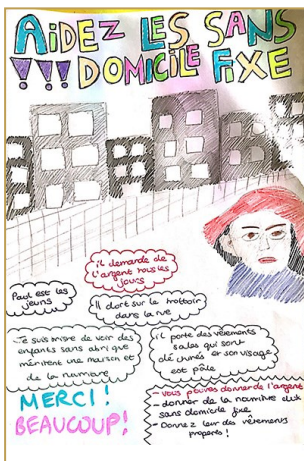 AiDEZ LES SANS
!!! DOMICILE FIXE
il demande de
l'argent tous les
jours
Paul est les
jeuns
Il dort sur le trottoir
dans la rue
Je suis triste de voir des
enfants sans abri que
méritent une maison et
de la nourriture
il porte des vêtements
sales qui sont
déchirés er son visage
est pâle
MERCI!
BEAUCOUP!
- vous pouvez donner de l'argent
- donner de la nourriture aux
sans domicile fixe
- Donnez leur des vêtements
propres!